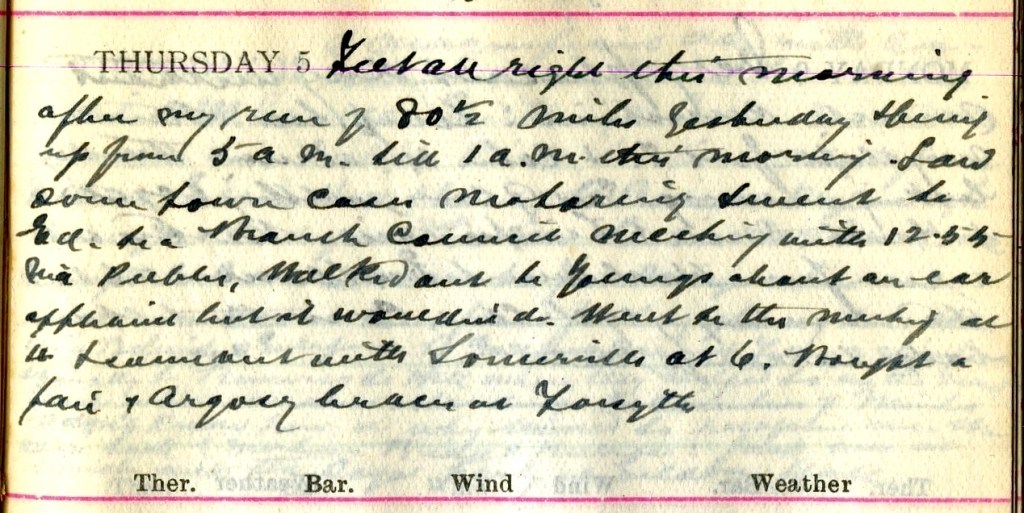 THURSDAY 5 Felt all right this morning
after my run of 80½ miles yesterday & being
up from 5 a.m. till 1 a.m. this morning. Saw
some town cases motoring & went to
Ed. to a Branch Council Meeting with 12.55
via Peebles, Walked out to Youngs about an ear
appliance but it wouldn't do. Went to the meeting at
& came out with Somerville at 6. Bought a
pair of Argosy braces at Forsyth
Ther. Bar. Wind Weather